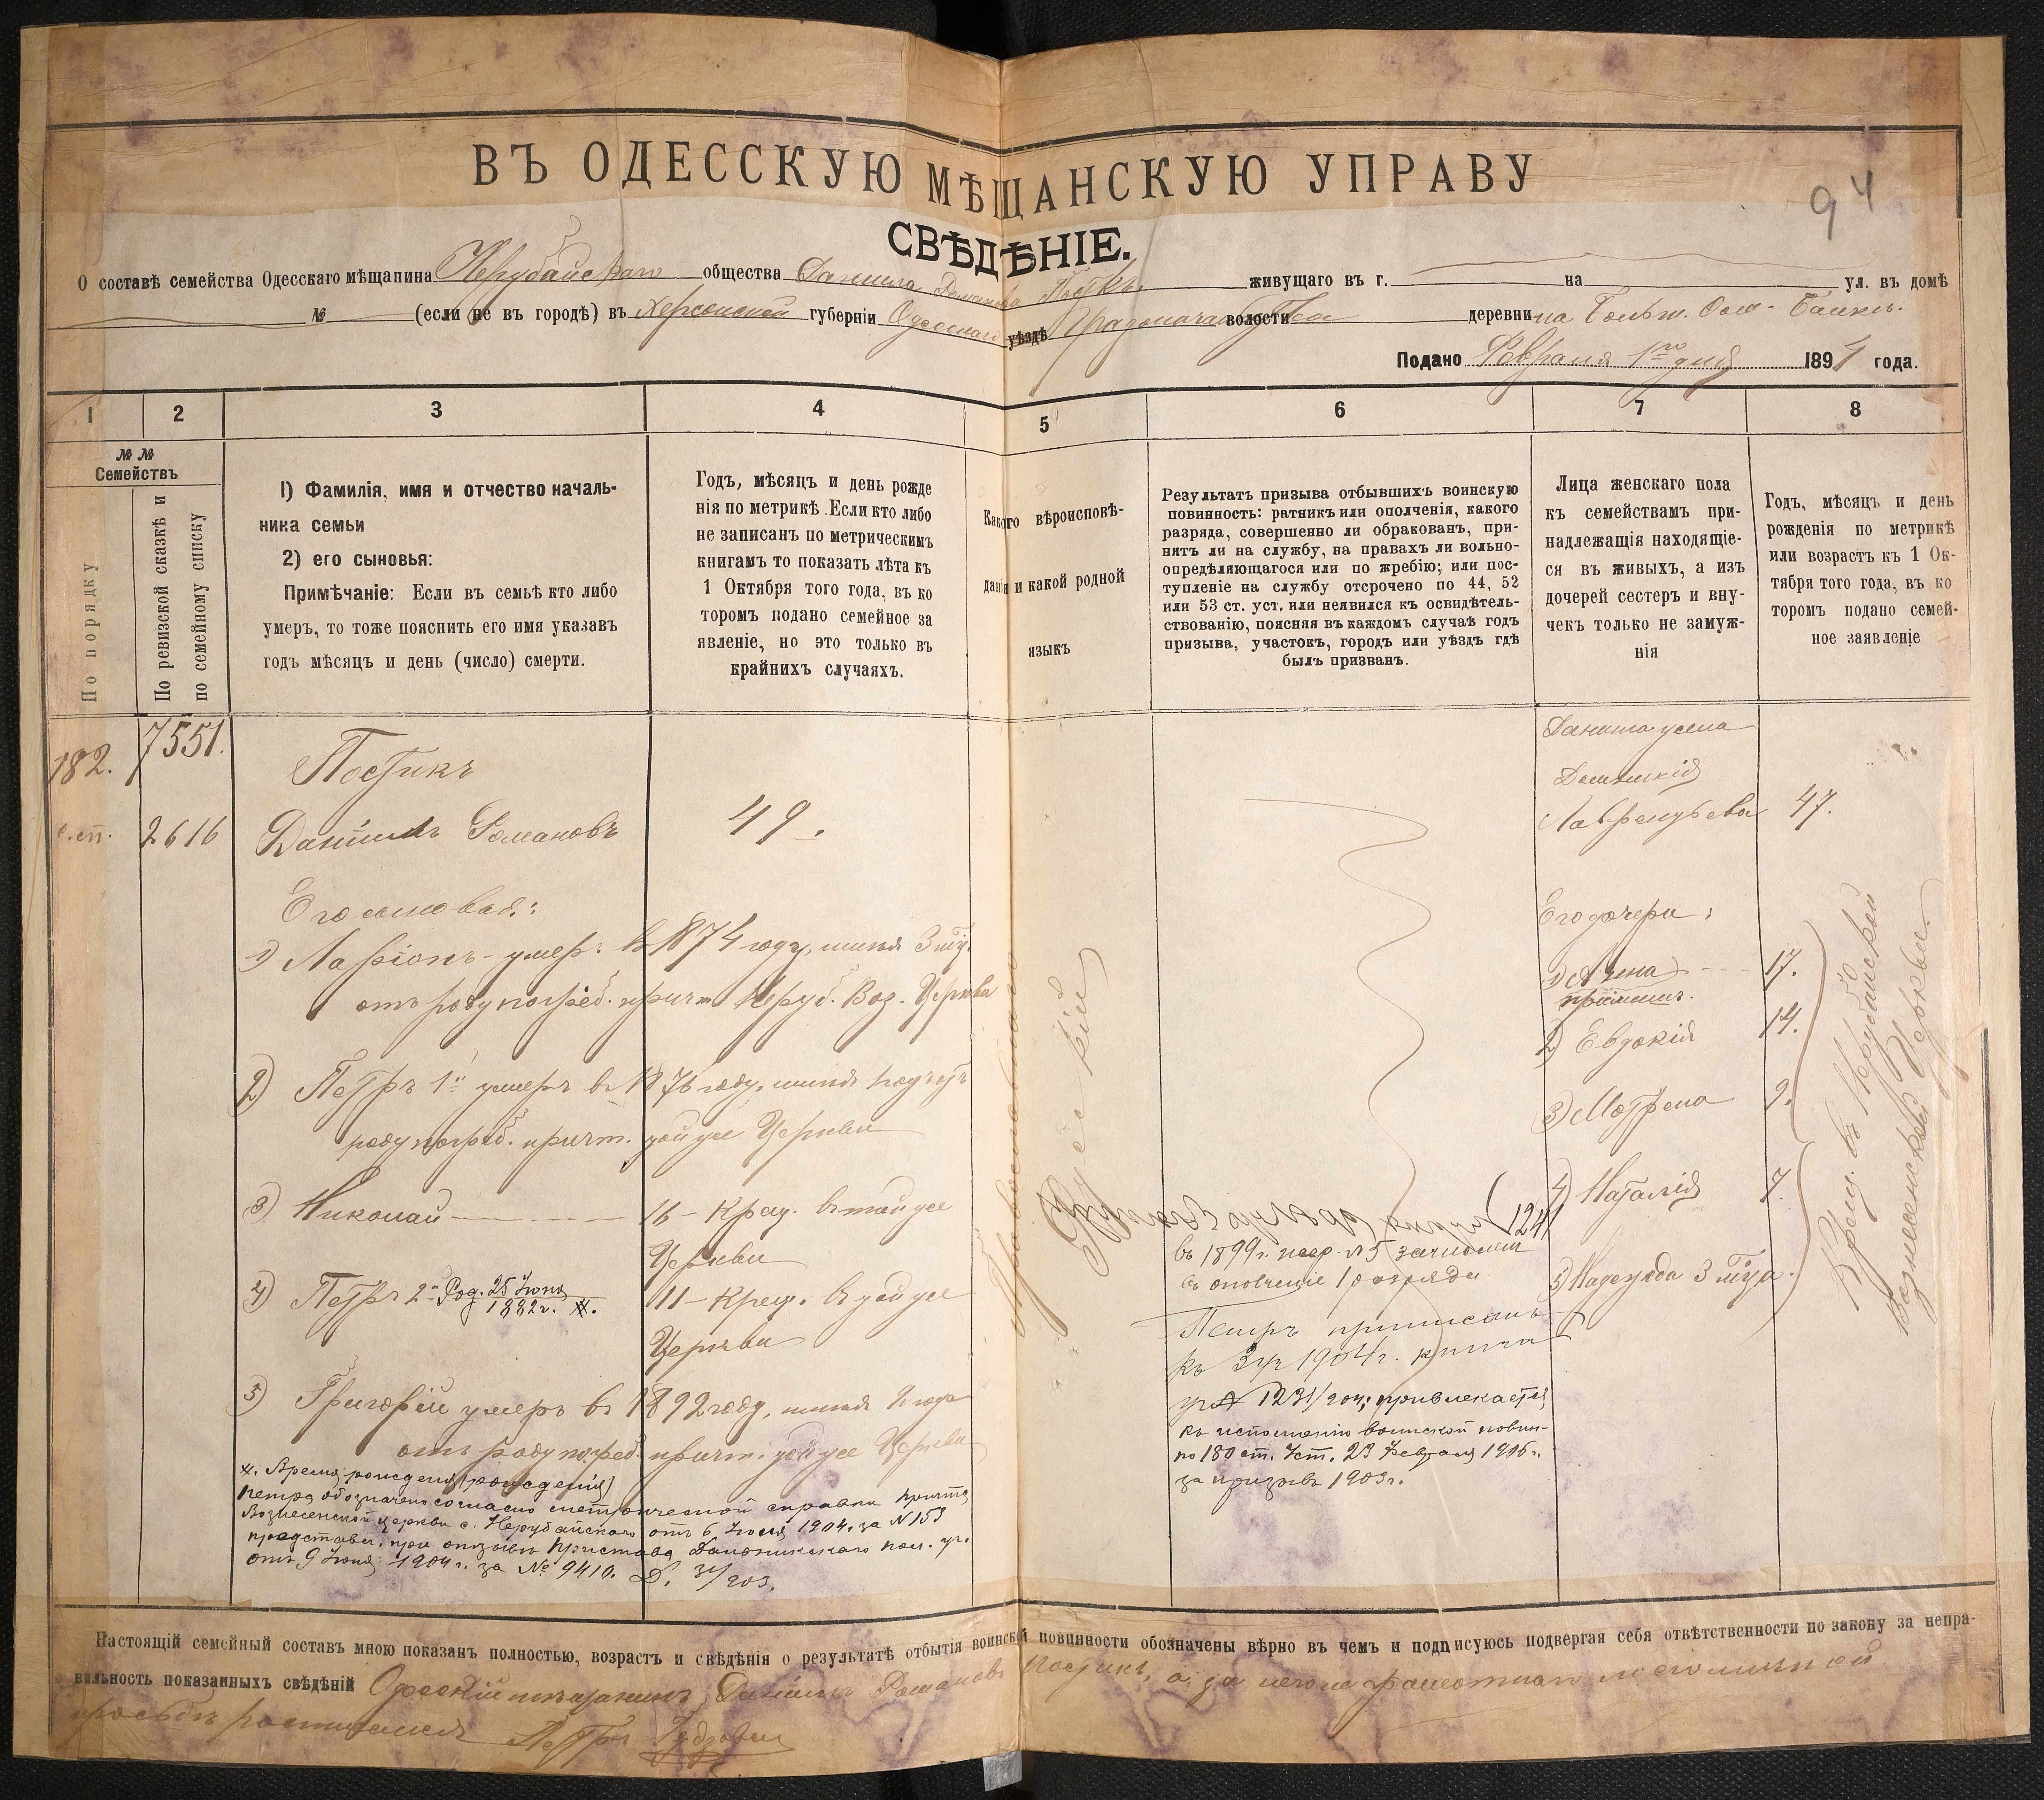 94
ВЪ ОДЕССКУЮ МѢЩАНСКУЮ УПРАВУ
СВѢДѢНІЕ.
О составѣ семейства Одесскаго мѣщанина Нерубайскаго общества Данила Романова Постикъ живущаго въ г. на ул. въ домѣ
№ (если не въ городѣ) въ Херсонской губерніи Одесскаго уѣздѣ Градоначальства волости деревни на Больш.
Подано Февраля 1го дня 1894 года.
1 2 3 4 5 6 7 8
№ №
Семействъ
По порядку
По ревизской сказкѣ и
по семейному списку
1) Фамилія, имя и отчество началь-
ника семьи
2) его сыновья:
Примѣчаніе: Если въ семьѣ кто либо
умеръ, то тоже пояснить его имя указавъ
годъ мѣсяцъ и день (число) смерти.
Годъ, мѣсяцъ и день рожде
нія по метрикѣ. Если кто либо
не записанъ по метрическимъ
книгамъ то показать лѣта къ
1 Октября того года, въ ко
торомъ подано семейное за
явленіе, но это только въ
крайнихъ случаяхъ.
Какого вѣроисповѣ-
данія и какой родной
языкъ
Результатъ призыва отбывшихъ воинскую
повинность: ратникъ или ополченія, какого
разряда, совершенно ли обракованъ, при-
нятъ ли на службу, на правахъ ли вольно-
опредѣляющагося или по жребію; или пос-
тупленіе на службу отсрочено по 44, 52
или 53 ст. уст. или неявился къ освидѣтель-
ствованію, поясняя въ каждомъ случаѣ годъ
призыва, участокъ, городъ или уѣздъ гдѣ
былъ призванъ.
Лица женскаго пола
къ семействамъ при-
надлежащія находящіе-
ся въ живыхъ, а изъ
дочерей сестеръ и вну-
чекъ только не замуж-
нія
Годъ, мѣсяцъ и день
рожденія по метрикѣ
или возрастъ къ 1 Ок-
тября того года, въ ко
торомъ подано семей-
ное заявленіе
182. 7551.
с.сп. 2616
Постикъ
Даніилъ Романовъ 49.
Его сыновья:
1) Ларіонъ - умер. въ 1874 году, имѣя 3 мѣс.
отъ роду погреб. причт. Неруб. Воз. Церкви
2) Петръ 1й умеръ въ 1876 году, имѣя
роду погреб. причт. той же Церкви
3) Николай 16 - Крещ. въ той же
Церкви
4) Петръ 2й Род. 25 Іюня
1882 г. #.
11 - Крещ. въ той же
Церкви
5) Григорій умеръ въ 1892 году, имѣя 2 года
отъ роду погреб. причт. той же Церкви
#. Время рожденія (рожденія)
Петра обозначено согласно метрической справки причта
Вознесенской церкви с. Нерубайскаго отъ 6 Іюля 1904 г. за N 153
представлен. при отзывѣ Пристава Дальницкаго пол. уч.
отъ 9 Іюня 1904 г. за № 9410. Д. 31/903.
Православнаго
Русскій
1241
въ 1899 г. жер. N 5 зачисленъ
въ ополченіе 1 разряда
Петръ приписанъ
къ 3 уч 1904 г.
1231/904; привлекается
къ исполненію воинской повин-
по 180 ст. Уст. 23 Февраля 1906 г.
за призывъ 1903 г.
Данила жена
Домникія
Лаврентьева 47.
Его дочери:
1) Анна 17.
2) Евдокія 14.
3) Мотрена 9.
4) Наталія 7.
5) Надежда 3 мѣсяца.
Крещ. въ Нерубайской
Вознесенской Церкви.
Настоящій семейный составъ мною показанъ полностью, возрастъ и свѣдѣнія о результатѣ отбытія воинской повинности обозначены вѣрно въ чемъ и подписуюсь подвергая себя отвѣтственности по закону за непра-
вильность показанныхъ свѣдѣній Одесскій мѣщанинъ Даніилъ Романовъ Постикъ, а за него неграмотнаго по его личной
просьбѣ росписался Петръ